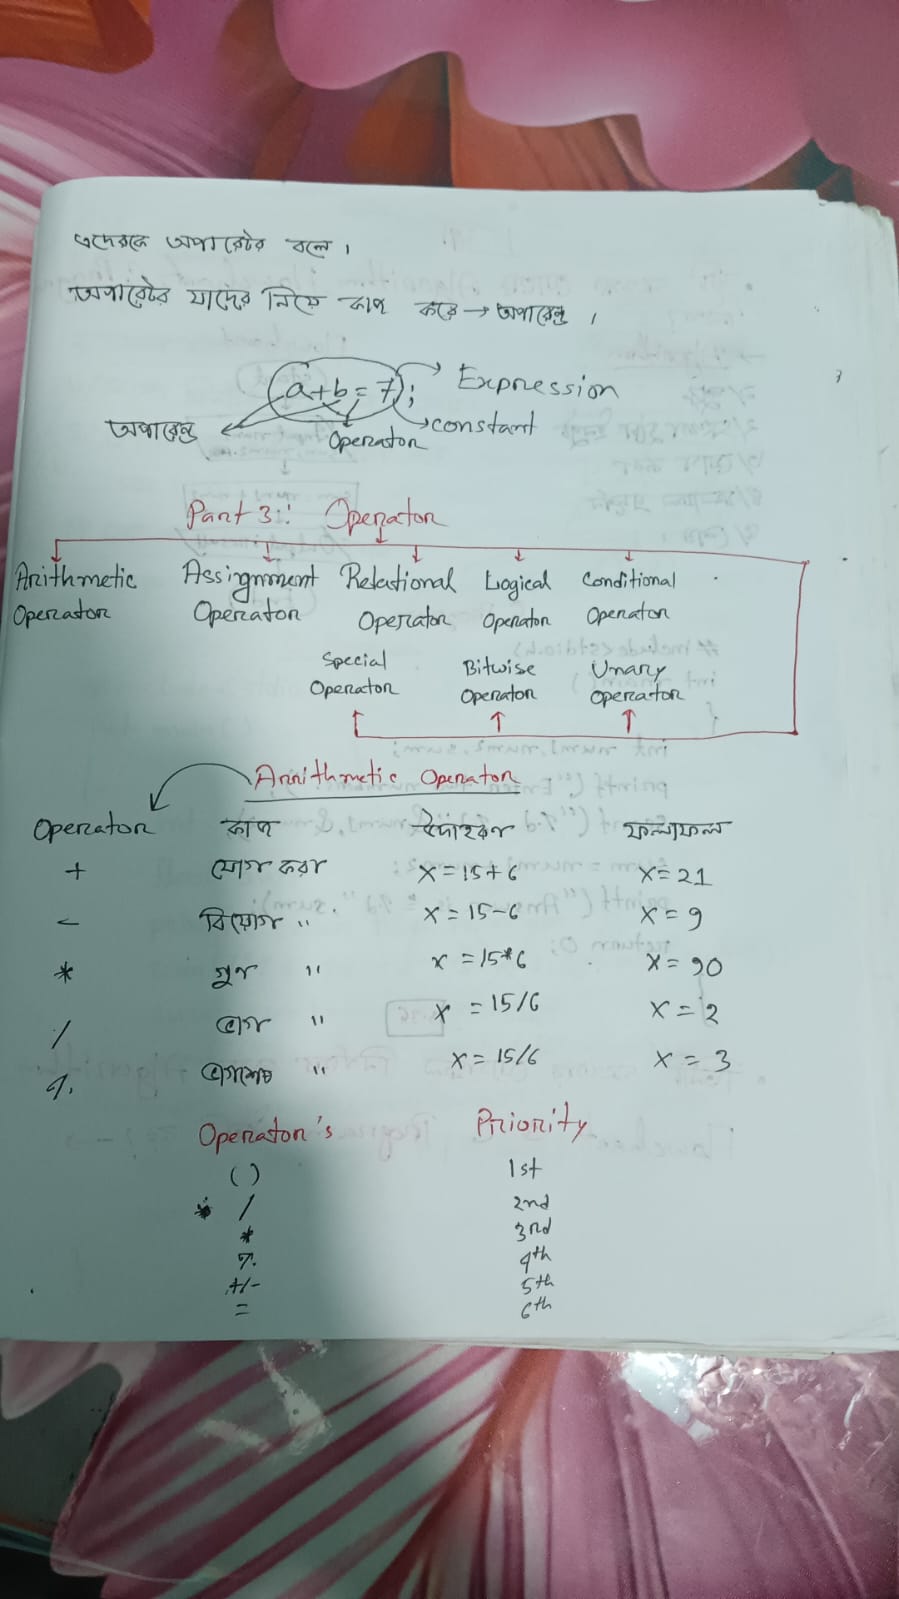 এদেরকে অপারেটর বলে।
অপারেটর যাদের নিয়ে কাজ করে → অপারেন্ড।
a+b = 7; Expression
অপারেন্ড Operator constant
Part 3: Operator
Arithmetic Operator
Assignment Operator
Relational Operator
Logical Operator
Conditional Operator
Special Operator
Bitwise Operator
Unary Operator
Arithmetic Operator
Operator কাজ উদাহরণ ফলাফল
+ যোগ করা x = 15+6 x = 21
- বিয়োগ " x = 15-6 x = 9
* গুণ " x = 15*6 x = 90
/ ভাগ " x = 15/6 x = 2
% ভাগশেষ " x = 15/6 x = 3
Operator's Priority
( ) 1st
/ 2nd
* 3rd
% 4th
+/- 5th
= 6th